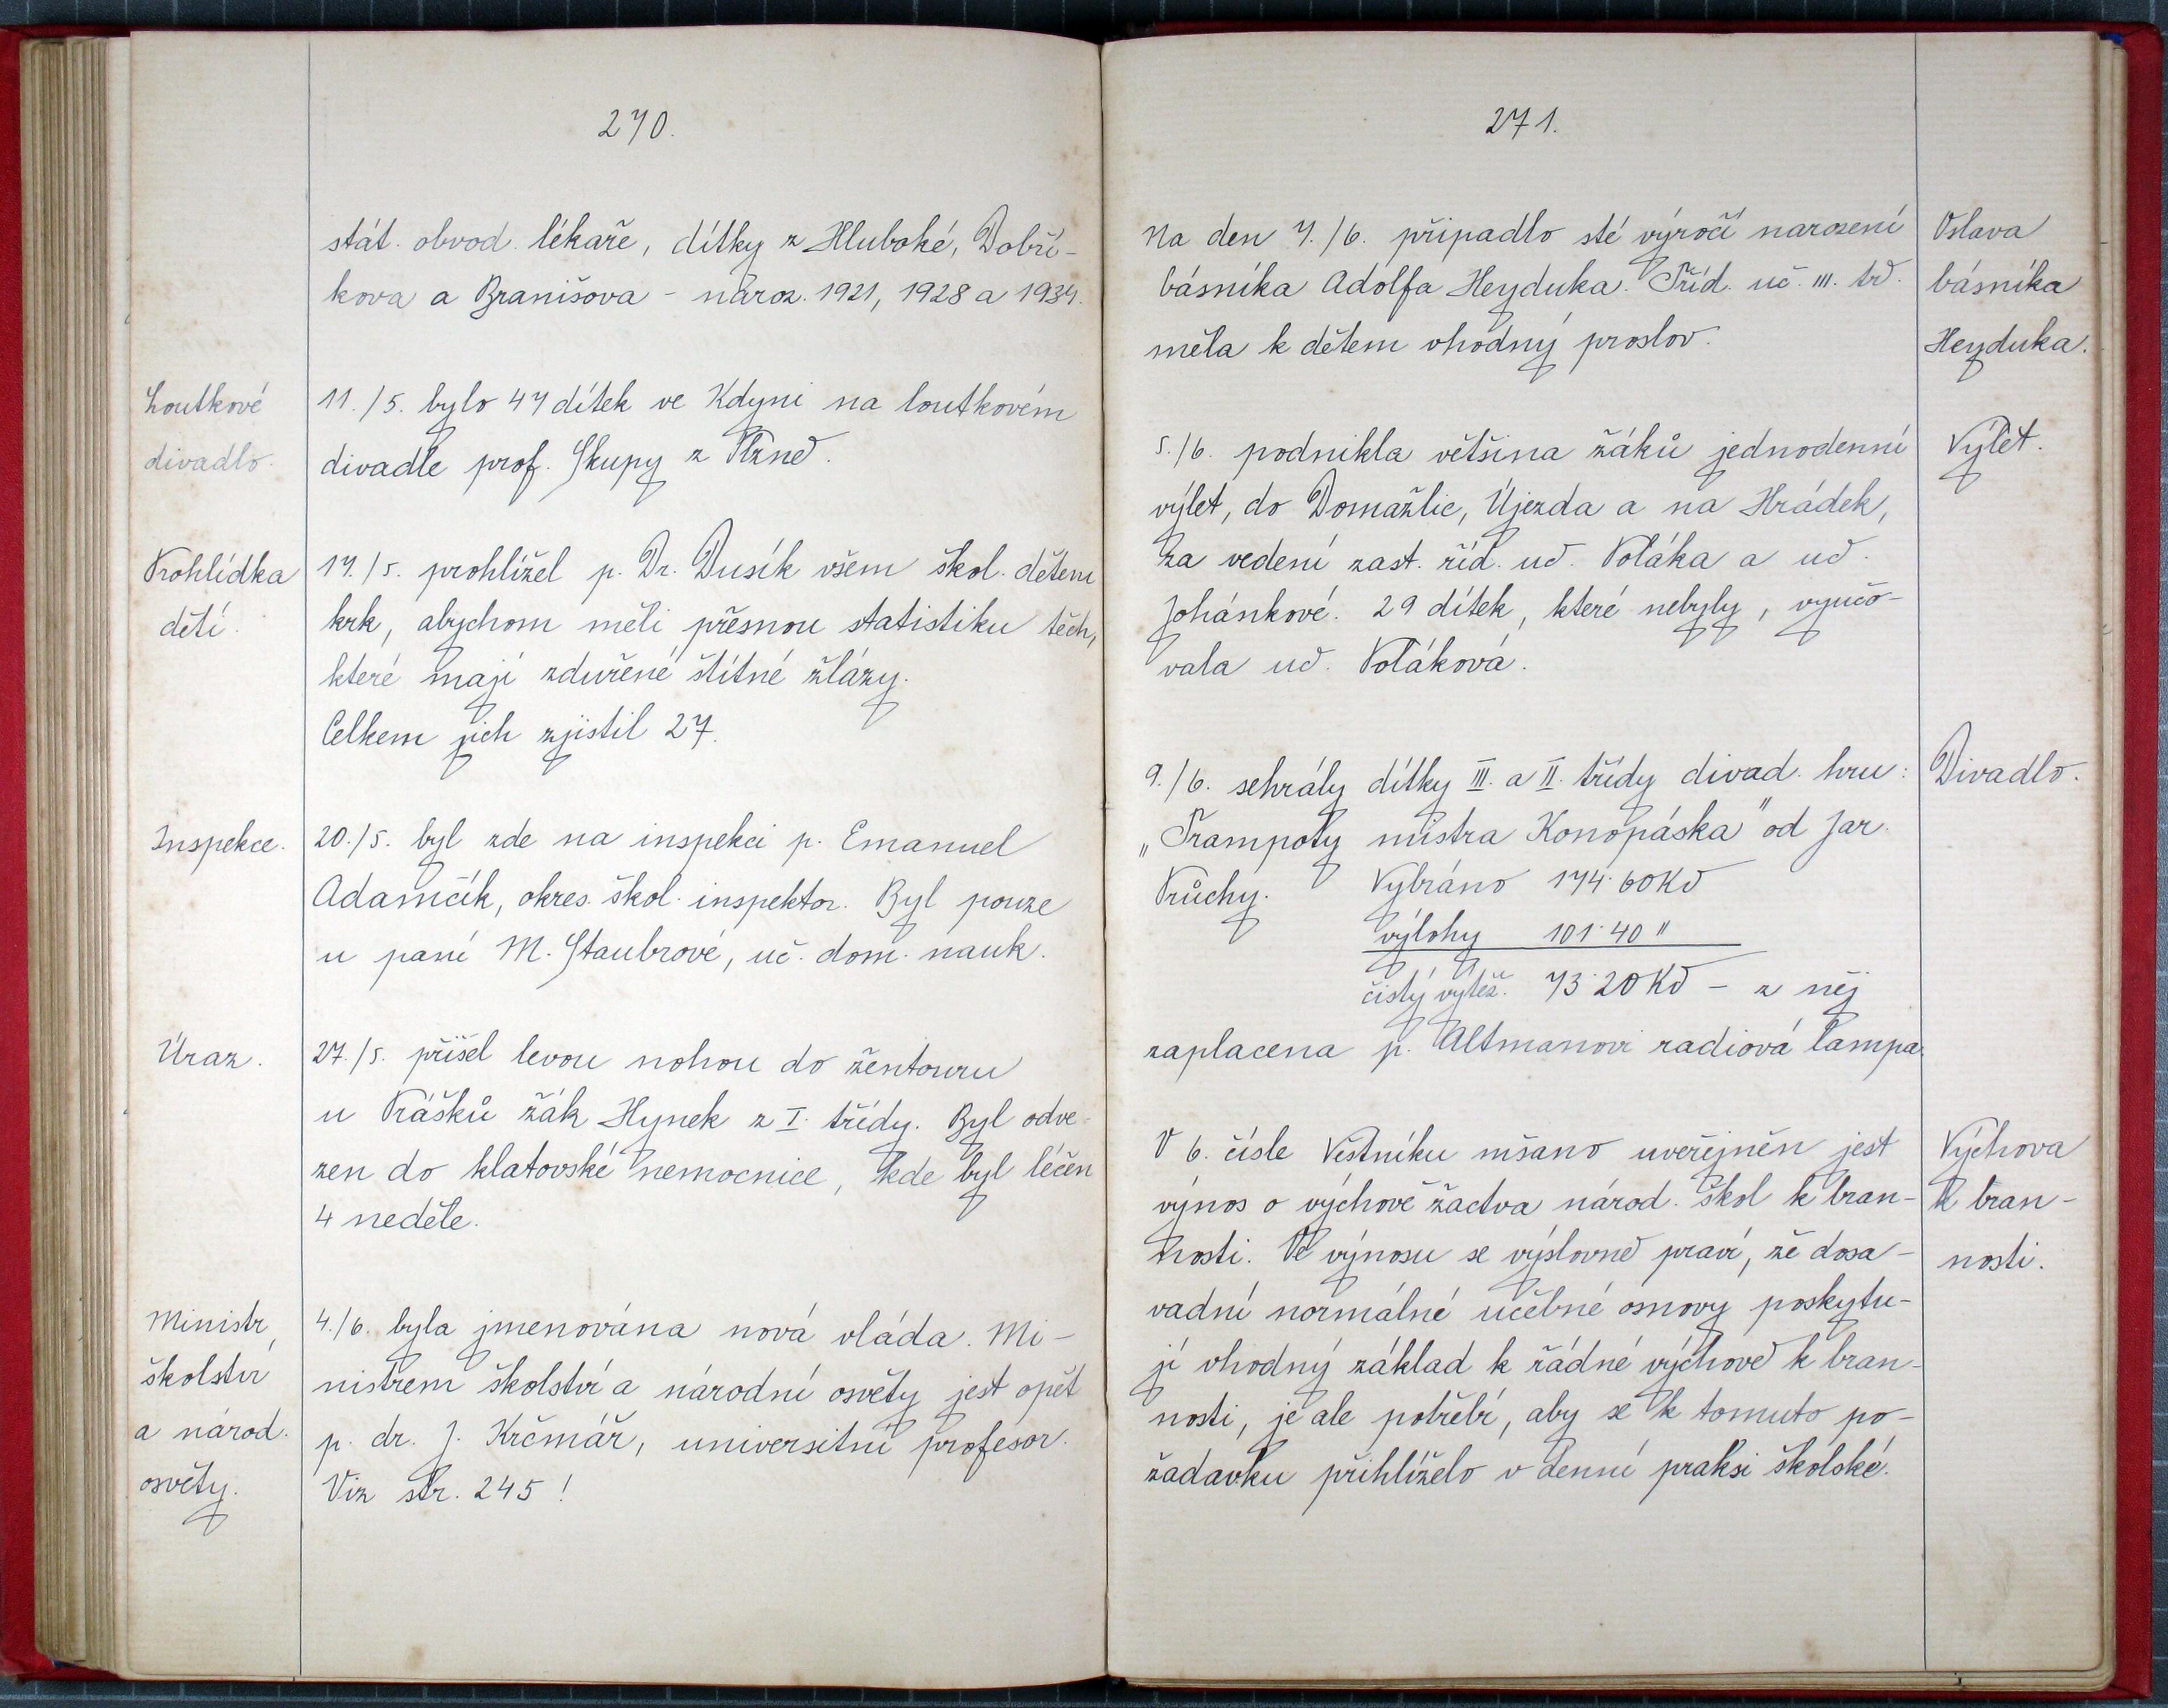 270.
stát. obvod. lékaře, dítky z Hluboké, Dobří-
kova a Branišova - naroz. 1921, 1928 a 1934.
Loutkové
divadlo.
11./5. bylo 47 dítek ve Kdyni na loutkovém
divadle prof. Skupy z Plzně.
Prohlídka
dětí.
17./5. prohlížel p. Dr. Dusík všem škol. dětem
krk, abychom měli přesnou statistiku těch,
které mají zduřené štítné žlázy.
Celkem jich zjistil 27.
Inspekce.
20./5. byl zde na inspekci p. Emanuel
Adamčík, okres. škol. inspektor. Byl pouze
u paní M. Staubrové, uč. dom. nauk.
Úraz.
27./5. přišel levou nohou do žentouru
u Prášků žák Hynek z I. třídy. Byl odve-
zen do klatovské nemocnice, kde byl léčen
4 neděle.
Ministr
školství
a národ.
osvěty.
4./6. byla jmenována nová vláda. Mi-
nistrem školství a národní osvěty jest opět
p. dr. J. Krčmář, universitní profesor.
Viz str. 245!
271.
Na den 7./6. připadlo sté výročí narození
básníka Adolfa Heyduka. Tříd. uč. III. tř.
měla k dětem vhodný proslov.
Oslava
básníka
Heyduka.
5./6. podnikla většina žáků jednodenní
výlet, do Domažlic, Újezda a na Hrádek,
za vedení zast. říd. uč. Poláka a uč.
Johánkové. 29 dítek, které nebyly, vyučo-
vala uč. Poláková.
Výlet.
9./6. sehrály dítky III. a II. třídy divad. hru:
„Trampoty mistra Konopáska" od Jar.
Průchy. Vybráno 174·60 Kč
výlohy 101·40 "
čistý výtěž. 73·20 Kč - z něj
zaplacena p. Altmanovi radiová lampa.
Divadlo.
V 6. čísle Věstníku mšano uveřejněn jest
výnos o výchově žactva národ. škol k bran-
nosti. Ve výnosu se výslovně praví, že dosa-
vadní normálné učebné osnovy poskytu-
jí vhodný základ k řádné výchově k bran-
nosti, je ale potřebí, aby se k tomuto po-
žadavku přihlíželo v denní praksi školské.
Výchova
k bran-
nosti.